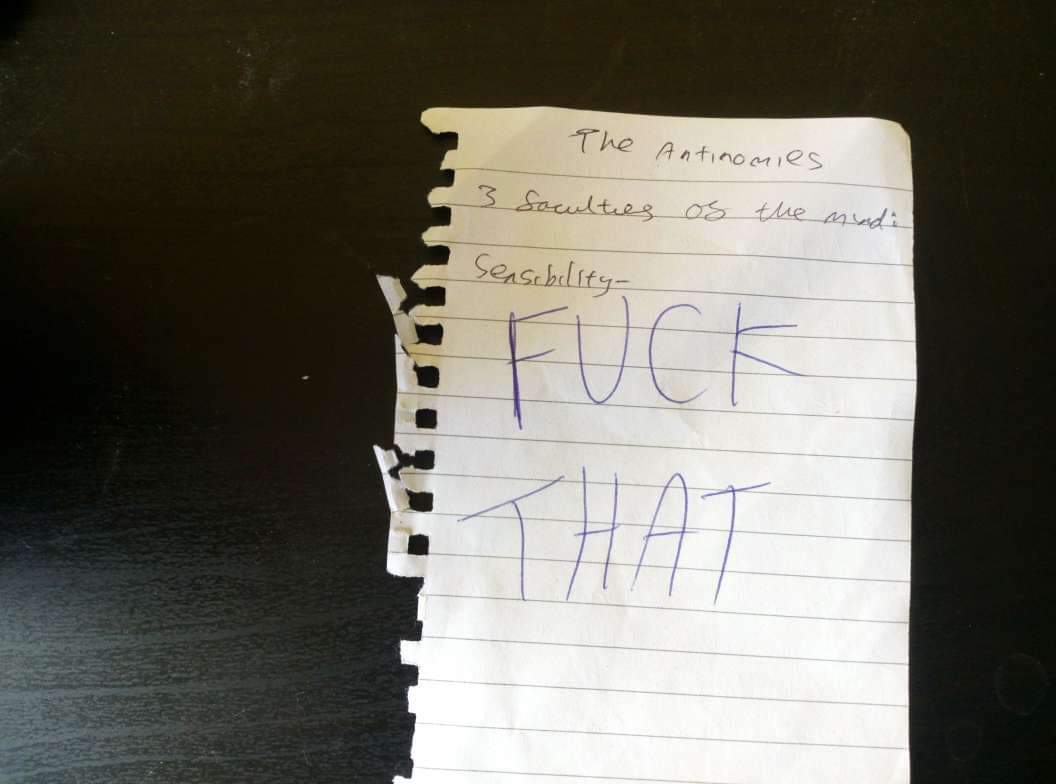 The Antinomies
3 faculties of the mind:
Sensibility-
FUCK
THAT